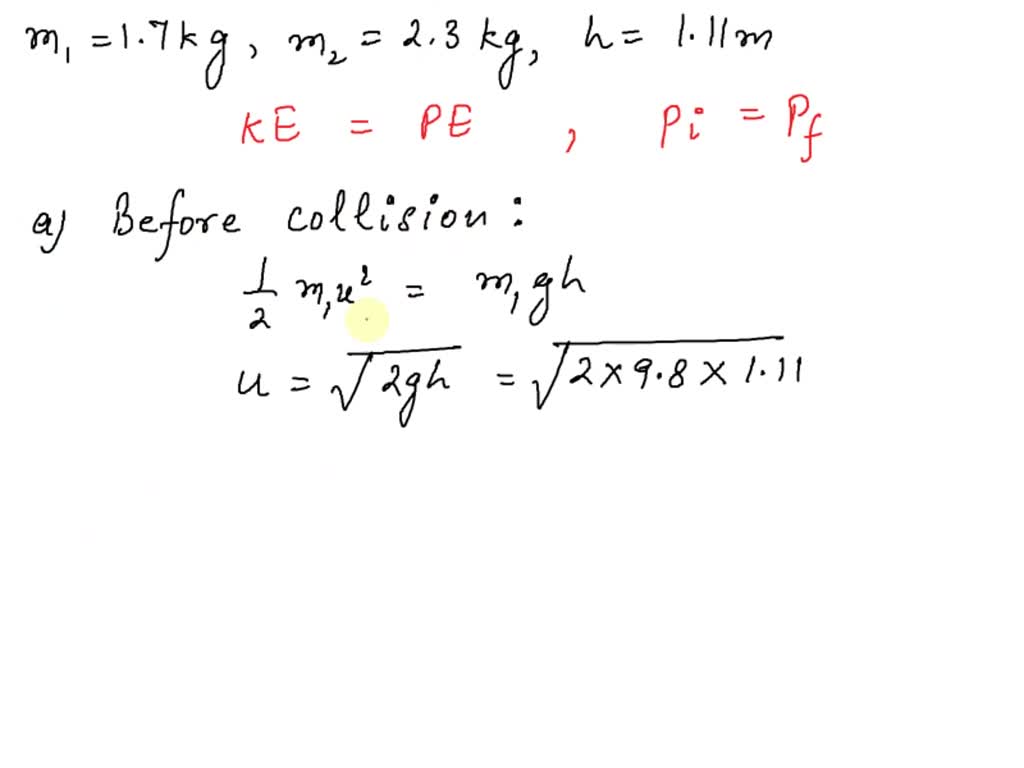 m₁ = 1.7 kg, m₂ = 2.3 kg, h = 1.11 m
KE = PE , Pi = Pf
a) Before collision :
1/2 m₁u² = m₁gh
u = √2gh = √2 × 9.8 × 1.11